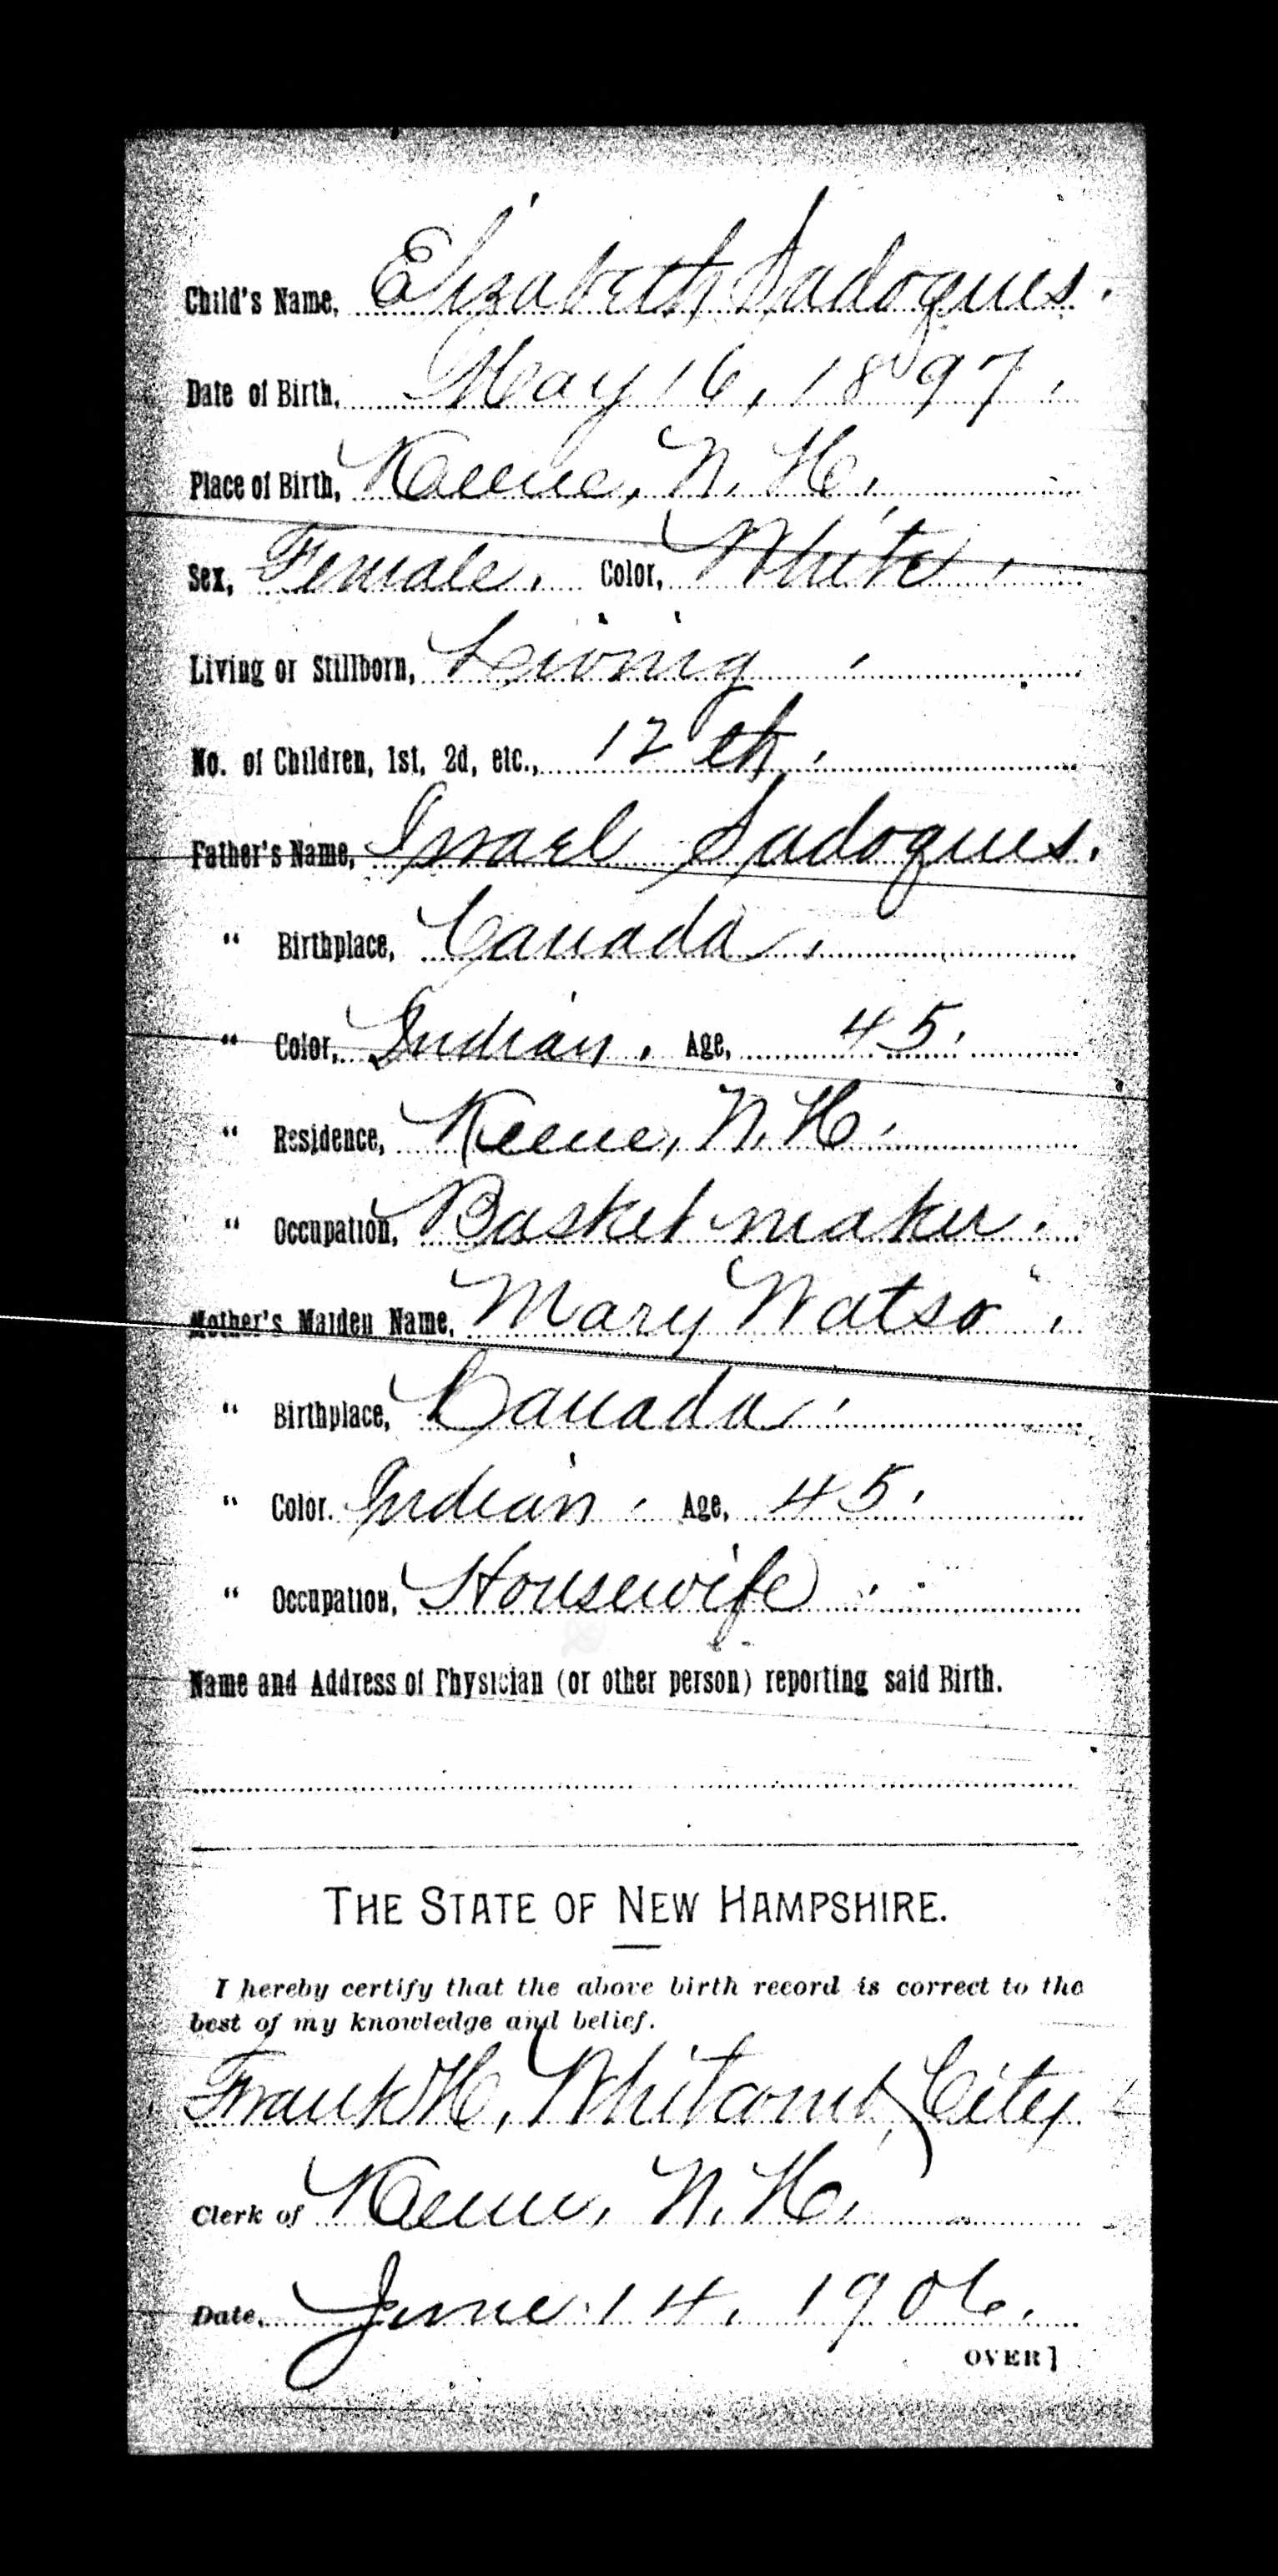 Child's Name, Elizabeth Sadoques.
Date of Birth, May 16, 1897.
Place of Birth, Keene, N. H.
Sex, Female. Color, White.
Living or Stillborn, Living.
No. of Children, 1st, 2d, etc., 12th.
Father's Name, Israel Sadoques.
" Birthplace, Canada.
" Color, Indian. Age, 45.
" Residence, Keene, N. H.
" Occupation, Basket maker.
Mother's Maiden Name, Mary Watso.
" Birthplace, Canada.
" Color. Indian. Age, 45.
" Occupation, Housewife.
Name and Address of Physician (or other person) reporting said Birth.
THE STATE OF NEW HAMPSHIRE.
I hereby certify that the above birth record is correct to the
best of my knowledge and belief.
Frank H. Whitcomb, City
Clerk of Keene, N. H.
Date, June 14, 1906.
OVER]